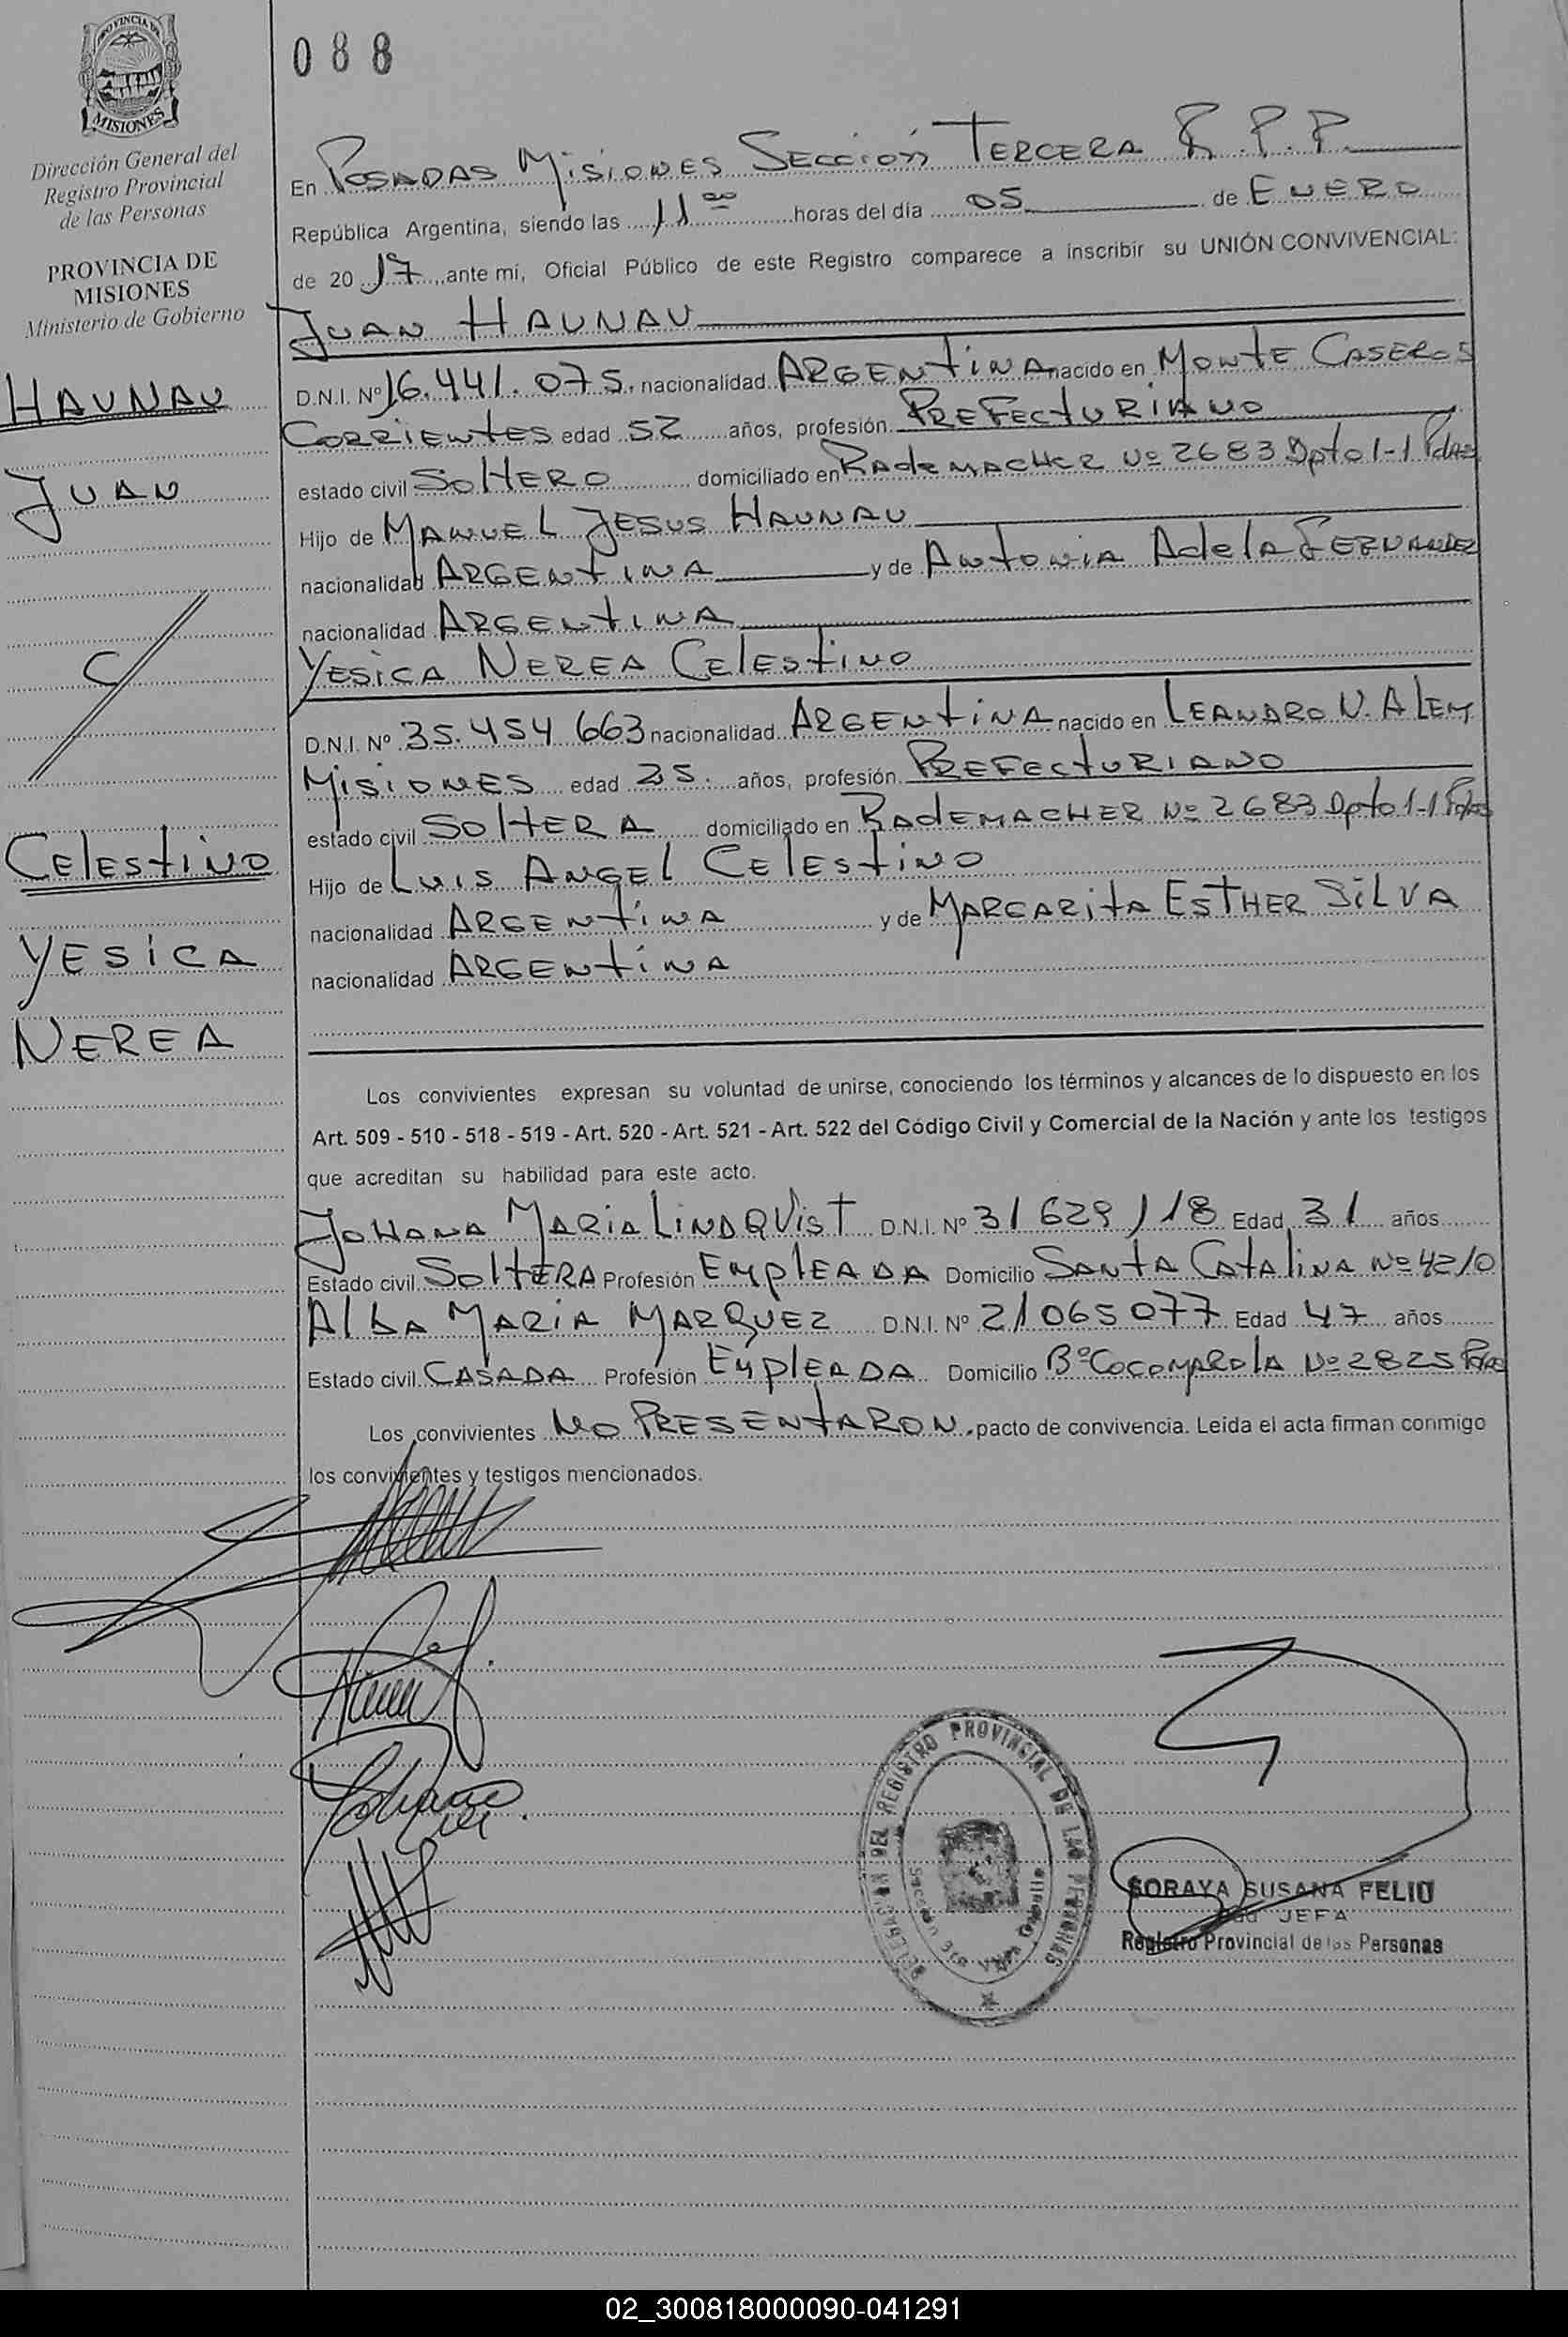 PROVINCIA DE
MISIONES
Dirección General del
Registro Provincial
de las Personas
PROVINCIA DE
MISIONES
Ministerio de Gobierno
HAUNAU
JUAN
C/
CELESTINO
YESICA
NEREA
088
En POSADAS MISIONES SECCIÓN TERCERA R.P.P.
República Argentina, siendo las 11 00 horas del día 05 de ENERO
de 20 17 ante mí, Oficial Público de este Registro comparece a inscribir su UNIÓN CONVIVENCIAL:
JUAN HAUNAU
D.N.I. Nº 16.441.075. nacionalidad ARGENTINA nacido en MONTE CASEROS
CORRIENTES edad 52 años, profesión PREFECTURIANO
estado civil SOLTERO domiciliado en RADEMACHER Nº 2683 Dpto 1-1 Pdas
Hijo de MANUEL JESUS HAUNAU
nacionalidad ARGENTINA y de ANTONIA ADELA FERNANDEZ
nacionalidad ARGENTINA
YESICA NEREA CELESTINO
D.N.I. Nº 35.454 663 nacionalidad ARGENTINA nacido en LEANDRO N. ALEM
MISIONES edad 25. años, profesión PREFECTURIANO
estado civil SOLTERA domiciliado en RADEMACHER Nº 2683 Dpto 1-1 Pdas
Hijo de LUIS ANGEL CELESTINO
nacionalidad ARGENTINA y de MARGARITA ESTHER SILVA
nacionalidad ARGENTINA
Los convivientes expresan su voluntad de unirse, conociendo los términos y alcances de lo dispuesto en los
Art. 509 - 510 - 518 - 519 - Art. 520 - Art. 521 - Art. 522 del Código Civil y Comercial de la Nación y ante los testigos
que acreditan su habilidad para este acto.
JOHANA MARIA LINDQVIST D.N.I. Nº 31 629 118 Edad 31 años
Estado civil SOLTERA Profesión EMPLEADA Domicilio SANTA CATALINA Nº 4210
ALBA MARIA MARQUEZ D.N.I. Nº 21 065 077 Edad 47 años
Estado civil CASADA Profesión EMPLEADA Domicilio Bº COCOMAROLA Nº 2825 Pdas
Los convivientes NO PRESENTARON. pacto de convivencia. Leída el acta firman conmigo
los convivientes y testigos mencionados.
DELEGACION DEL REGISTRO PROVINCIAL DE LAS PERSONAS
SORAYA SUSANA FELIU
JEFA
Registro Provincial de las Personas
02_300818000090-041291